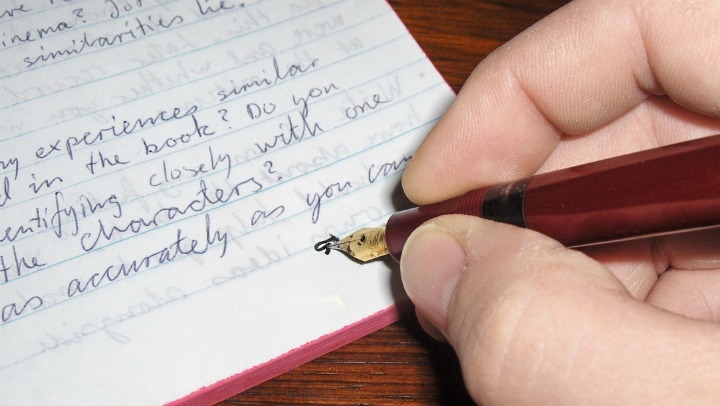 inema? for
similarities lie.
ny experiences similar
d in the book? Do you
entifying closely with one
the characters?
as accurately as you can